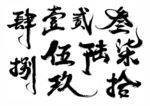 肆壹贰叁柒
捌伍玖陆拾